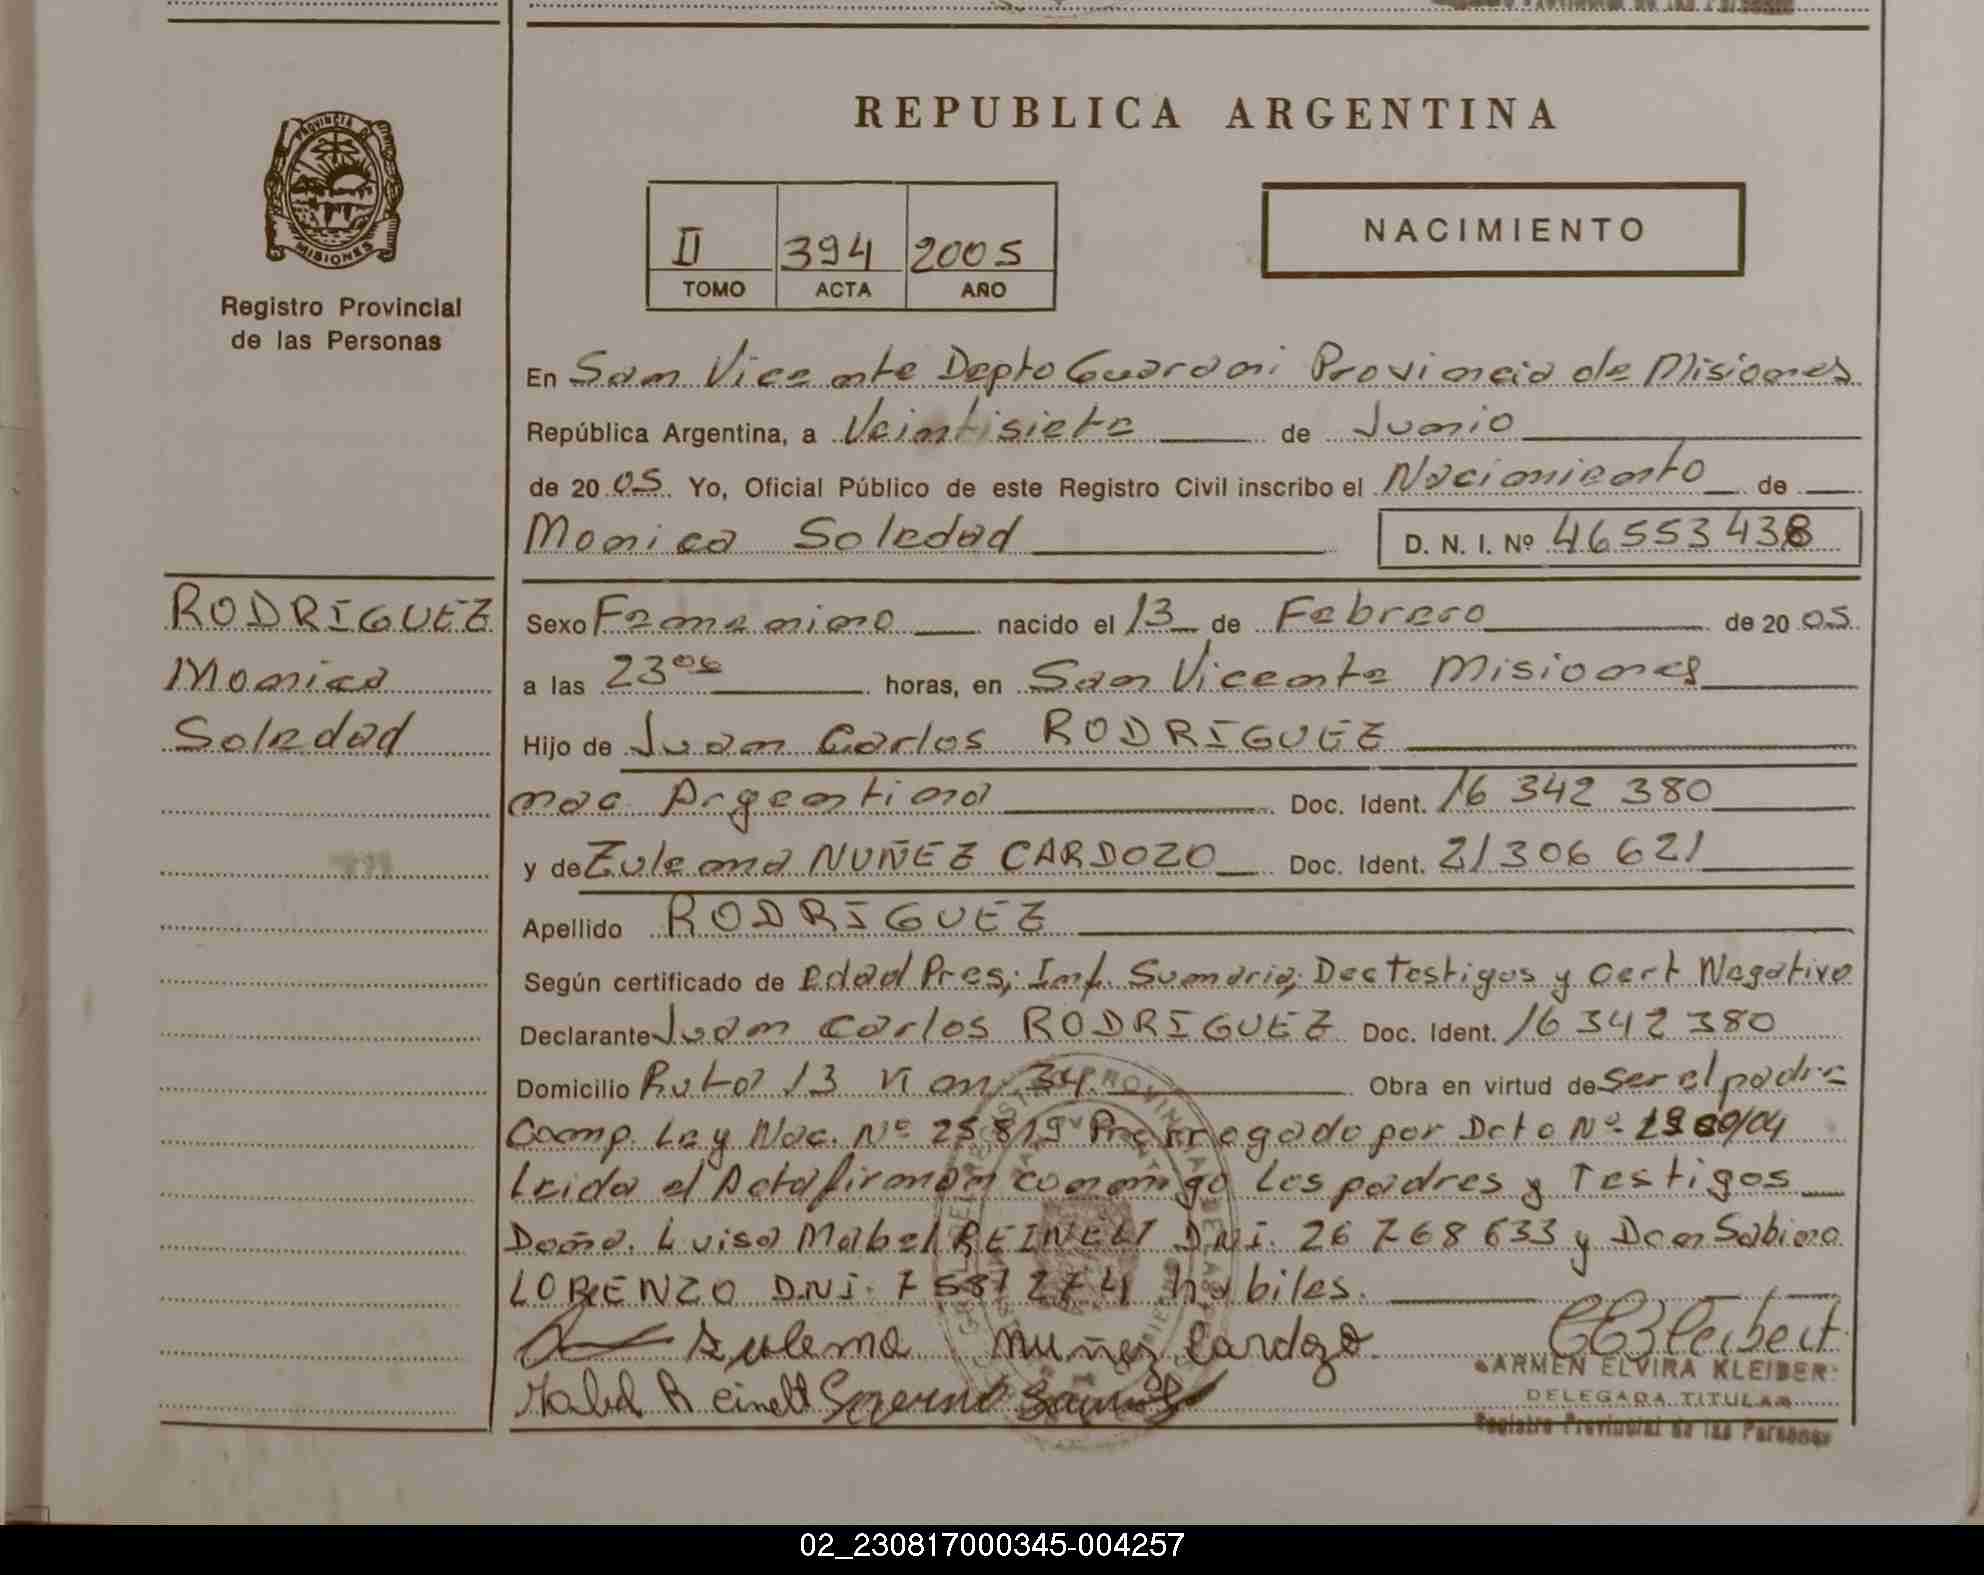 REPUBLICA ARGENTINA
PROVINCIA DE
MISIONES
Registro Provincial
de las Personas
II 394 2005
TOMO ACTA AÑO
NACIMIENTO
En San Vicente Depto Guarani Provincia de Misiones
República Argentina, a Veintisiete de Junio
de 20 05 Yo, Oficial Público de este Registro Civil inscribo el Nacimiento de
Monica Soledad D. N. I. Nº 46553438
RODRIGUEZ
Monica
Soledad
Sexo Femenino nacido el 13 de Febrero de 20 05
a las 23 06 horas, en San Vicente Misiones
Hijo de Juan Carlos RODRIGUEZ
nac. Argentina Doc. Ident. 16 342 380
y de Zulema NUÑEZ CARDOZO Doc. Ident. 21 306 621
Apellido RODRIGUEZ
Según certificado de Edad Pres; Inf. Sumaria; Dec Testigos y Cert Negativo
Declarante Juan Carlos RODRIGUEZ Doc. Ident. 16 342 380
Domicilio Ruta 13 Km 34 Obra en virtud de ser el padre
Comp. Ley Nac. Nº 25819 Prorrogado por Dcto Nº
Leida el Acta firman conmigo los padres y Testigos
Doña. Luisa Mabel REINELT DNI. 26 768 633 y Don Sabino
LORENZO D.N.I. 7 587 274 habiles.
Zulema Nuñez Cardozo
Mabel Reinelt
CARMEN ELVIRA KLEIBER
DELEGADA TITULAR
Registro Provincial de las Personas
02_230817000345-004257